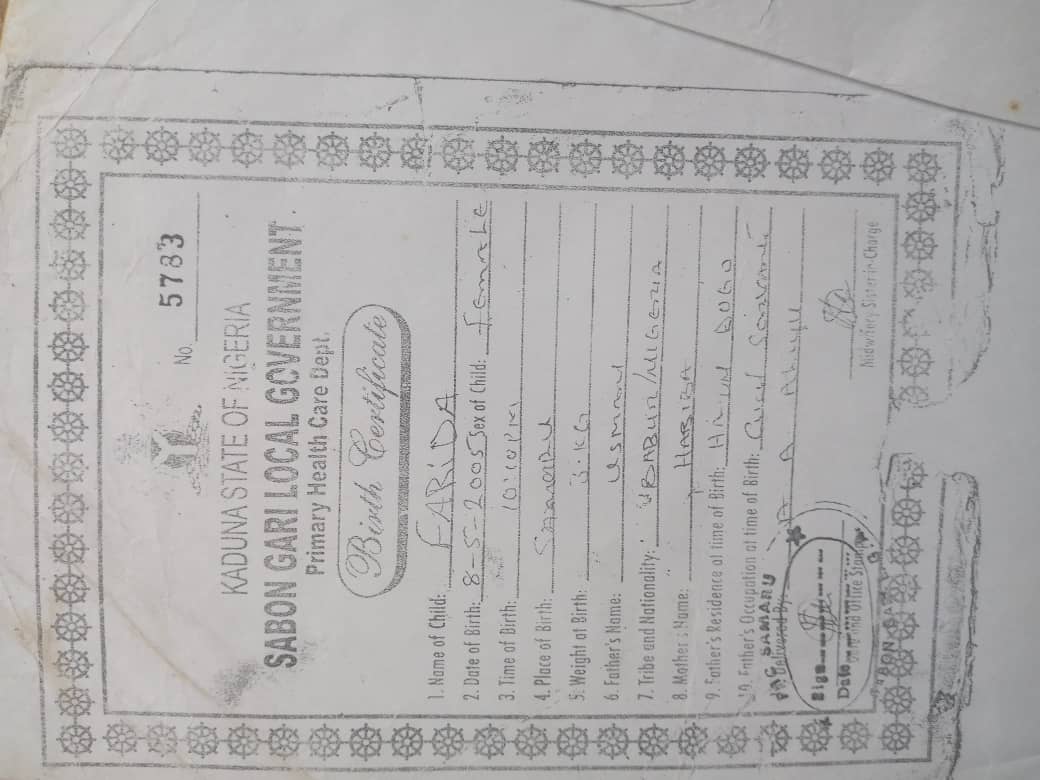 No. 5783
KADUNA STATE OF NIGERIA
SABON GARI LOCAL GOVERNMENT.
Primary Health Care Dept.
Birth Certificate
1. Name of Child: FARIDA
2. Date of Birth: 8-5-2005 Sex of Child: Female
3. Time of Birth: 10:00PM
4. Place of Birth: Samaru
5. Weight at Birth: 3.KG
6. Father's Name: Usman
7. Tribe and Nationality: BABUR/NIGERIA
8. Mother's Name: HABIBA
9. Father's Residence at time of Birth: Hayin DOGO
10. Father's Occupation at time of Birth: Civil Servant
Delivered By: A
SAMARU
Sign
Date
and Office Stamp
Midwifery Sister in-Charge